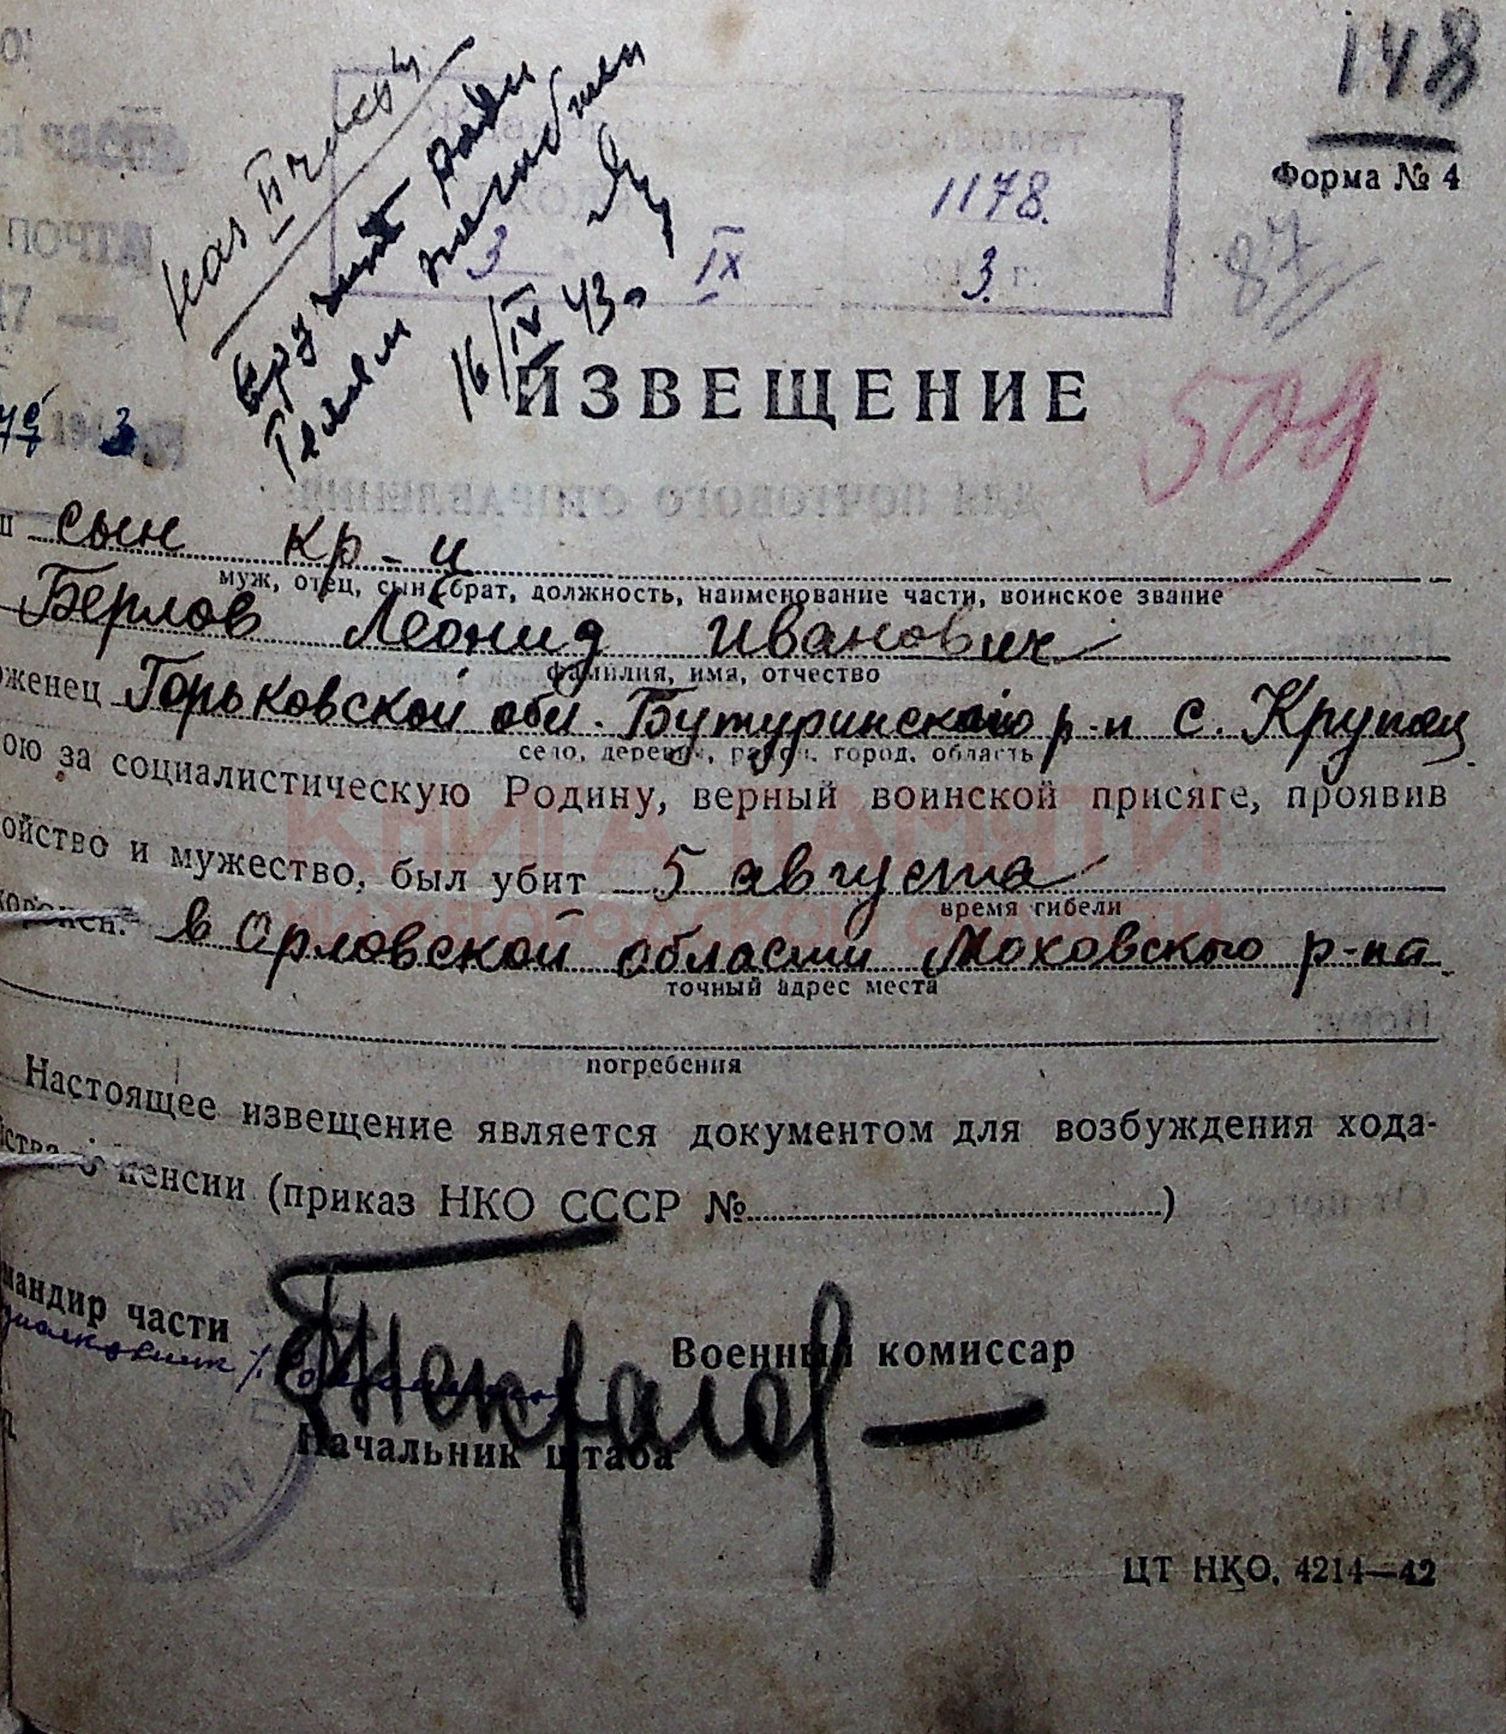 148
Форма № 4
1178.
3 IX 3. г.
87
16/IV 43
ИЗВЕЩЕНИЕ
509
сын кр-ц
муж, отец, сын, брат, должность, наименование части, воинское звание
Берлов Леонид Иванович
фамилия, имя, отчество
оженец Горьковской обл. Бутуринского р-н с. Крупец
село, деревня, район, город, область
ою за социалистическую Родину, верный воинской присяге, проявив
ойство и мужество, был убит 5 августа
время гибели
в Орловской области Моховского р-на
точный адрес места
погребения
КНИГА ПАМЯТИ
НИЖЕГОРОДСКОЙ ОБЛАСТИ
Настоящее извещение является документом для возбуждения хода-
пенсии (приказ НКО СССР № )
мандир части
Военный комиссар
Начальник штаба
63647
ЦТ НКО. 4214—42